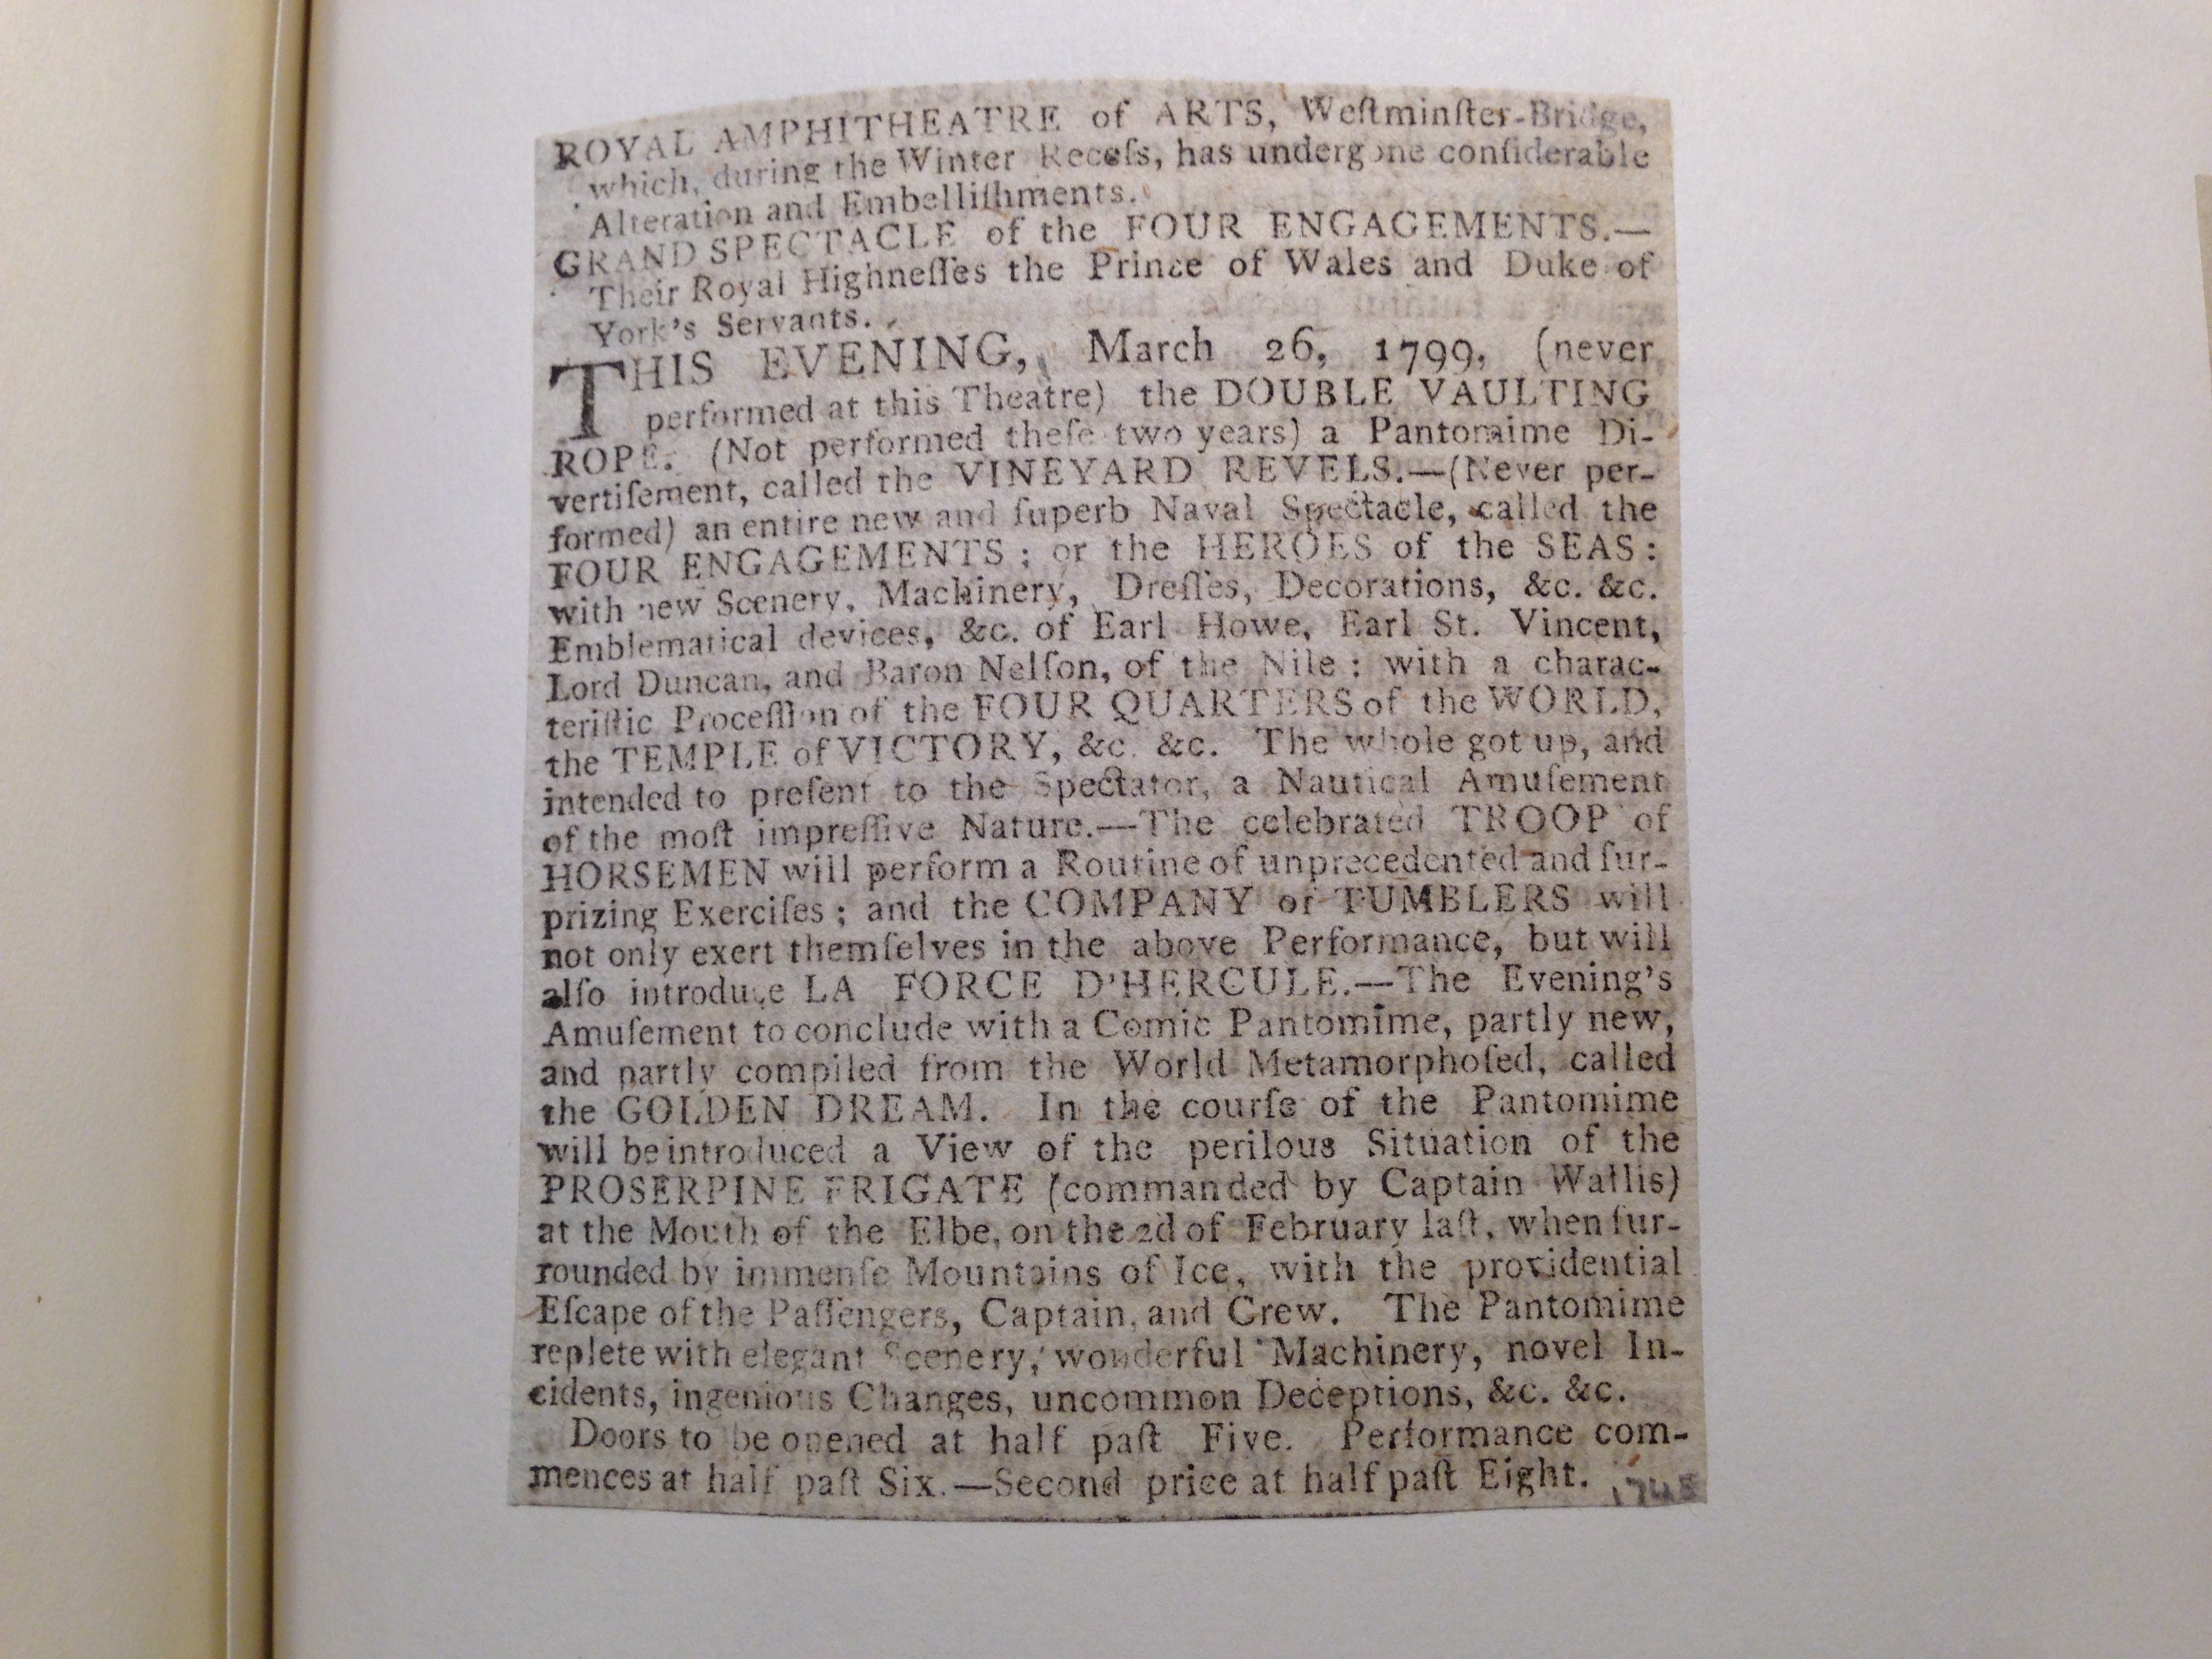 ROYAL AMPHITHEATRE of ARTS, Weſtminſter-Bridge,
which, during the Winter Receſs, has undergone conſiderable
Alteration and Embelliſhments.
GRAND SPECTACLE of the FOUR ENGAGEMENTS.—
Their Royal Highneſſes the Prince of Wales and Duke of
York's Servants.
THIS EVENING, March 26, 1799, (never
performed at this Theatre) the DOUBLE VAULTING
ROPE. (Not performed theſe two years) a Pantomime Di-
vertiſement, called the VINEYARD REVELS.—(Never per-
formed) an entire new and ſuperb Naval Spectacle, called the
FOUR ENGAGEMENTS; or the HEROES of the SEAS:
with new Scenery, Machinery, Dreſſes, Decorations, &c. &c.
Emblematical devices, &c. of Earl Howe, Earl St. Vincent,
Lord Duncan, and Baron Nelſon, of the Nile: with a charac-
teriſtic Proceſſion of the FOUR QUARTERS of the WORLD,
the TEMPLE of VICTORY, &c. &c. The whole got up, and
intended to preſent to the Spectator, a Nautical Amuſement
of the moſt impreſſive Nature.—The celebrated TROOP of
HORSEMEN will perform a Routine of unprecedented and ſur-
prizing Exerciſes; and the COMPANY of TUMBLERS will
not only exert themſelves in the above Performance, but will
alſo introduce LA FORCE D'HERCULE.—The Evening's
Amuſement to conclude with a Comic Pantomime, partly new,
and partly compiled from the World Metamorphoſed, called
the GOLDEN DREAM. In the courſe of the Pantomime
will be introduced a View of the perilous Situation of the
PROSERPINE FRIGATE (commanded by Captain Wallis)
at the Mouth of the Elbe, on the 2d of February laſt, when ſur-
rounded by immenſe Mountains of Ice, with the providential
Eſcape of the Paſſengers, Captain, and Crew. The Pantomime
replete with elegant Scenery, wonderful Machinery, novel In-
cidents, ingenious Changes, uncommon Deceptions, &c. &c.
Doors to be opened at half paſt Five. Performance com-
mences at half paſt Six.—Second price at half paſt Eight.